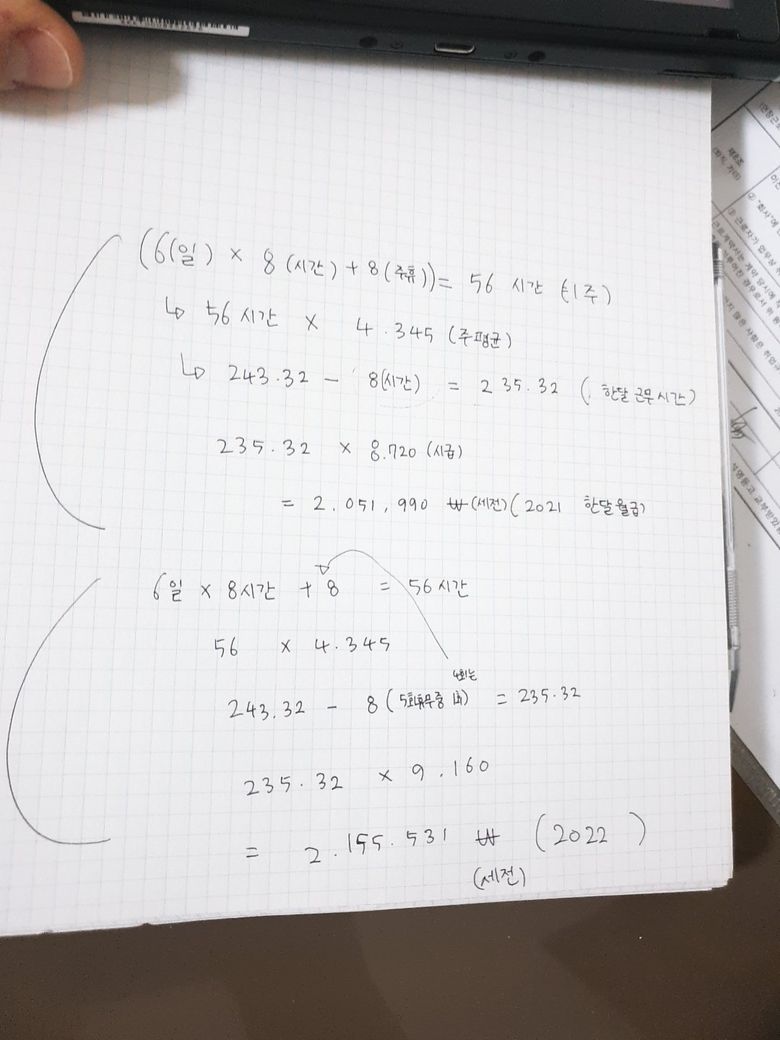 (6(일) × 8(시간) + 8(주휴)) = 56 시간 (1주)
↳ 56시간 × 4.345 (주평균)
↳ 243.32 - 8(시간) = 235.32 (한달 근무시간)
235.32 × 8.720 (시급)
= 2.051,990 ₩ (세전) (2021 한달월급)
6일 × 8시간 + 8 = 56시간
56 × 4.345
4회는
243.32 - 8 (5회휴무중 1회) = 235.32
235.32 × 9.160
= 2.155.531 ₩ (2022)
(세전)
제6조
② "회사"에
③ 근로자가 업무상